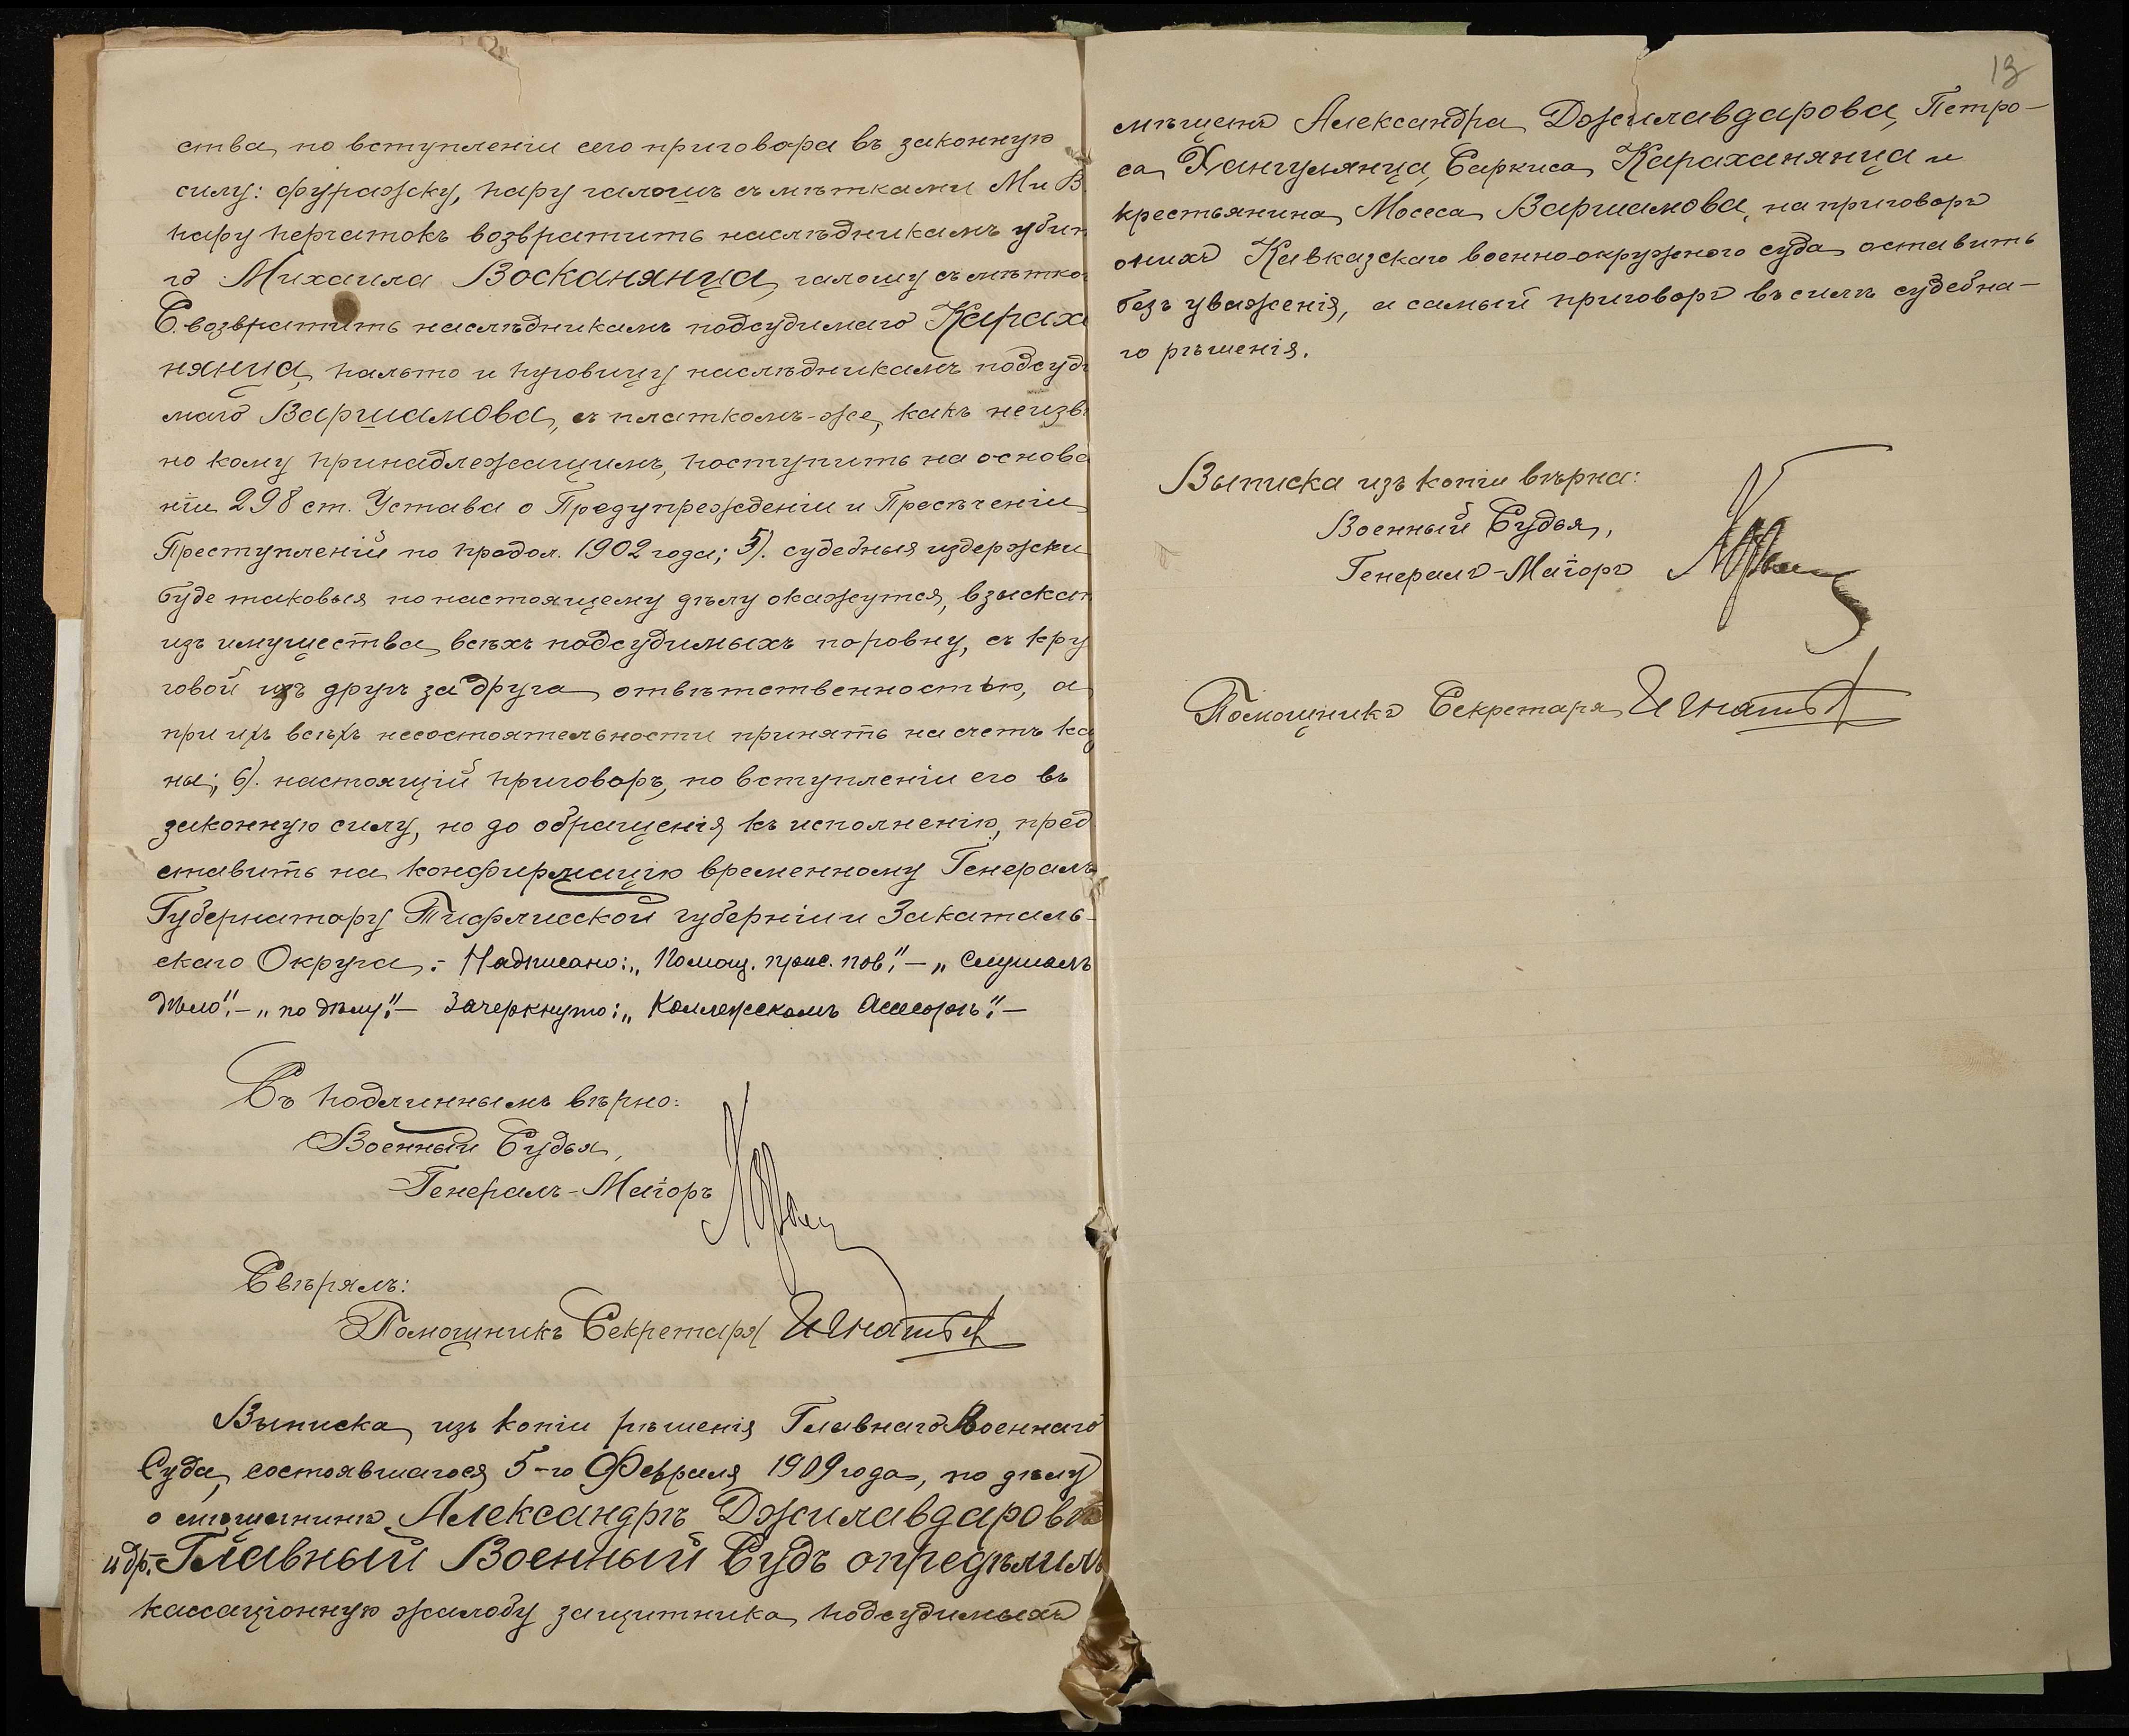 ства, по вступленіи сего приговора въ законную
силу: фуражку, пару галошъ съ мѣтками М и В.
пару перчатокъ возвратить наслѣдникамъ убит
го Михаила Восканянца, галошу съ мѣтко
С. возвратить наслѣдникамъ подсудимаго Карах
нянца, пальто и пуговицу наслѣдникамъ подсуд
маго Варшамова, съ платкомъ-же, какъ неизв
но кому принадлежащимъ, поступить на основа
ніи 298 ст. Устава о Предупрежденіи и Пресѣченіи
Преступленій по продол. 1902 года; 5). судебныя издержки
буде таковыя по настоящему дѣлу окажутся, взыскат
изъ имущества всѣхъ подсудимыхъ поровну, съ кру
говой ихъ другъ за друга отвѣтственностью, а
при ихъ всѣхъ несостоятельности принять на счетъ каз
ны; 6). настоящій приговоръ, по вступленіи его въ
законную силу, но до обращенія къ исполненію, пред
ставить на конфирмацію временному Генералъ
Губернатору Тифлисской губерніи и Закаталь-
скаго Округа.- Надписано: „Помощ. прис. пов."- „слушалъ
дѣло".- „по дѣлу".- Зачеркнуто: „Коллежскомъ Асессорѣ".-
Съ подлиннымъ вѣрно:
Военный Судья,
Генералъ-Маіоръ
Свѣрялъ:
Помощникъ Секретаря Игнатьев
Выписка изъ копіи рѣшенія Главнаго Военнаго
Суда, состоявшагося 5-го Февраля 1909 года, по дѣлу
о мѣщанинѣ Александрѣ Джилавдаровѣ
и др.- Главный Военный Судъ опредѣлилъ
кассаціонную жалобу защитника подсудимыхъ
13
мѣщанъ Александра Джилавдарова, Петро-
са Хангулянца, Саркиса Караханянца и
крестьянина Мосеса Варшамова, на приговоръ
о нихъ Кавказскаго военно-окружного суда оставить
безъ уваженія, а самый приговоръ въ силѣ судебна-
го рѣшенія.
Выписка изъ копіи вѣрна:
Военный Судья,
Генералъ-Маіоръ
Помощникъ Секретаря Игнатьев